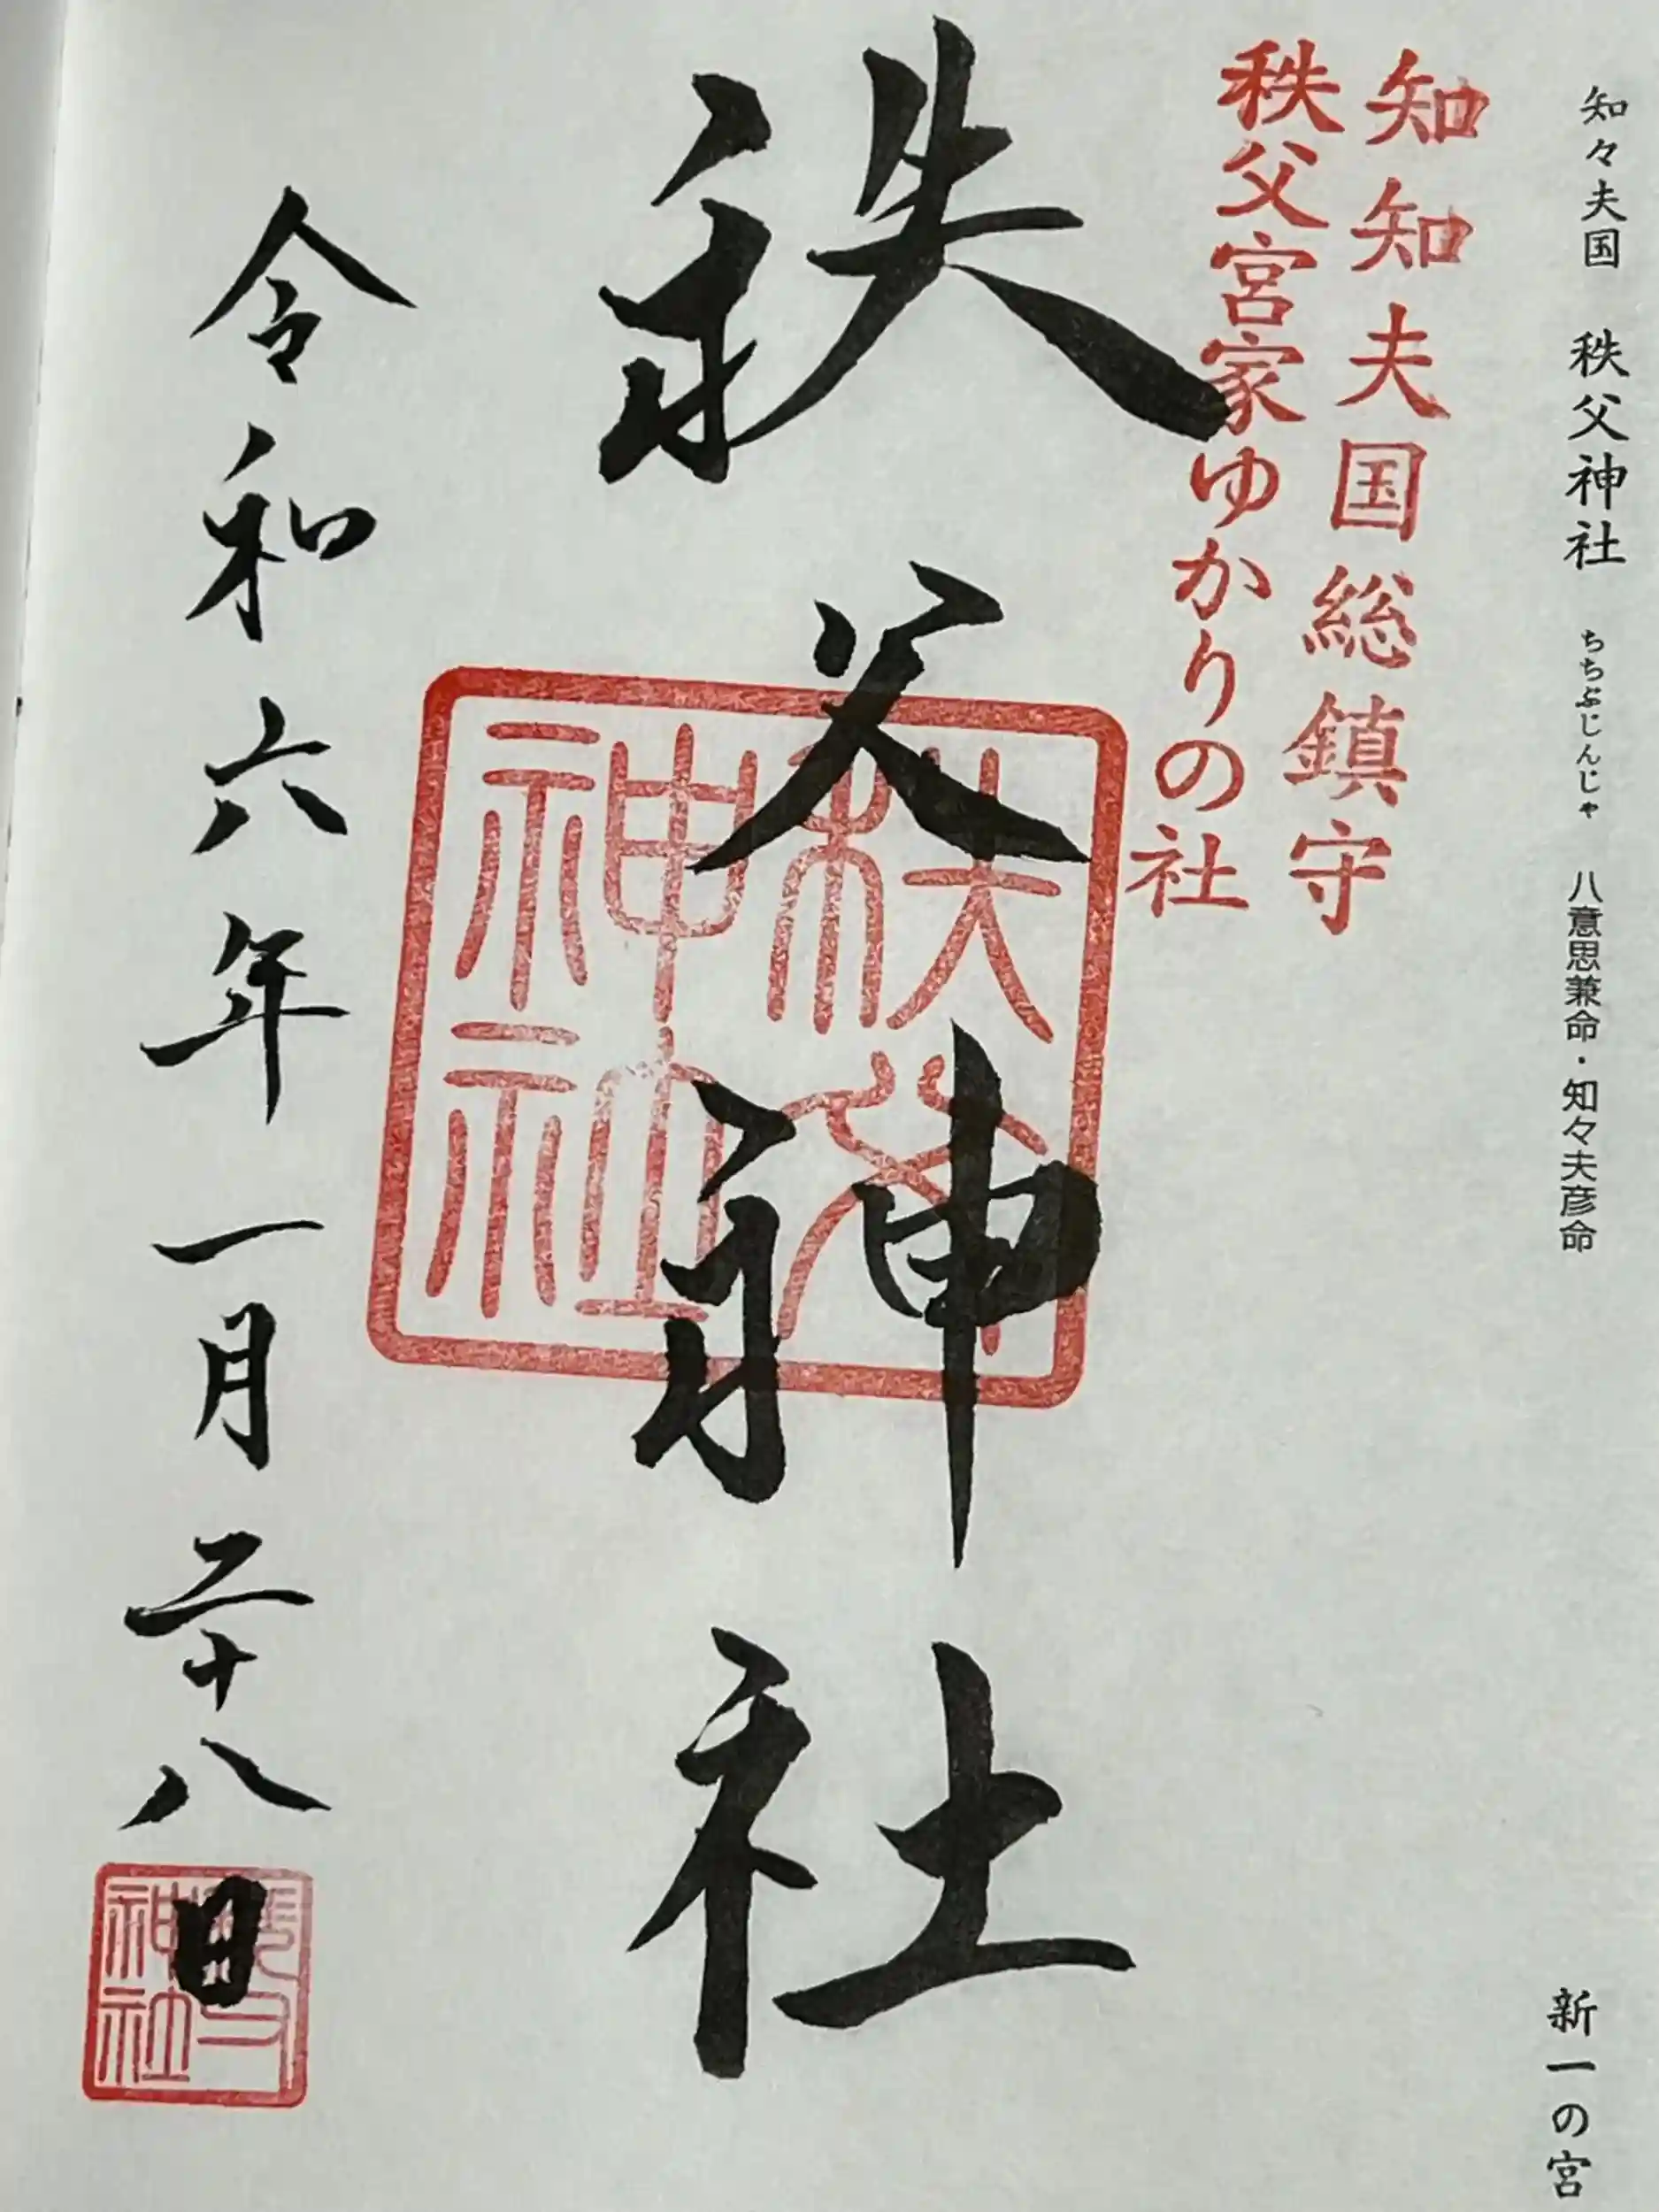 知々夫国 秩父神社 ちちぶじんじゃ 八意思兼命・知々夫彦命
新一の宮
知知夫国総鎮守
秩父宮家ゆかりの社
秩父神社
秩父
神社
令和六年一月二十八日
神社